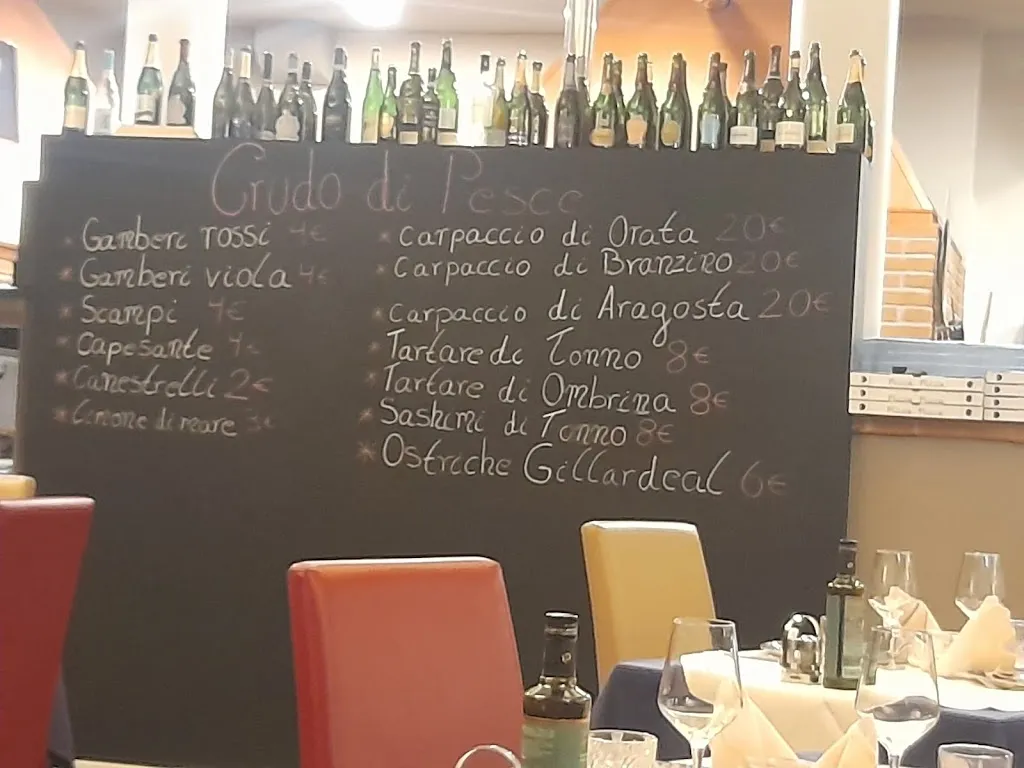 Crudo di Pesce
* Gamberi rossi 4€
* Gamberi viola 4€
* Scampi 4€
* Capesante 4€
* Canestrelli 2€
* Limone di mare 3€
* Carpaccio di Orata 20€
* Carpaccio di Branzino 20€
* Carpaccio di Aragosta 20€
* Tartare di Tonno 8€
* Tartare di Ombrina 8€
* Sashimi di Tonno 8€
* Ostriche Gillardeal 6€